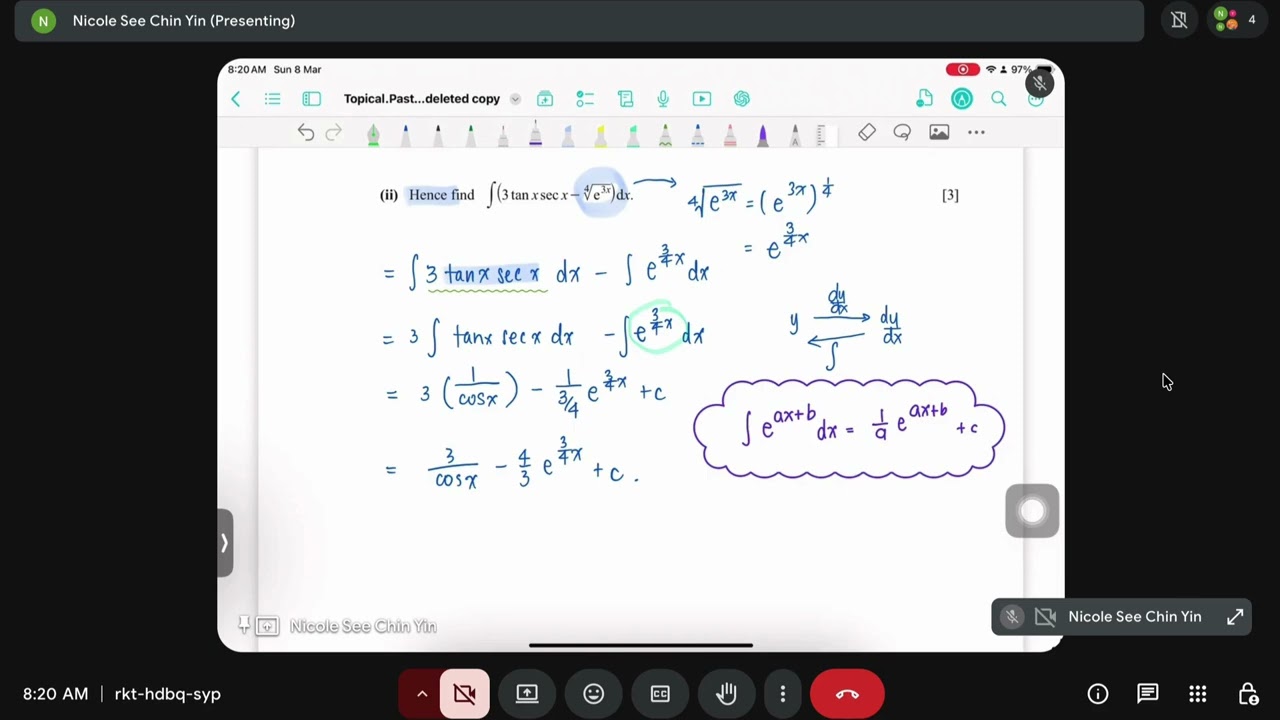 N Nicole See Chin Yin (Presenting)
N N 4
8:20 AM Sun 8 Mar 97%
Topical.Past...deleted copy
(ii) Hence find ∫(3 tan x sec x − ∜e^{3x}) dx. [3]
∜e^{3x} = (e^{3x})^{1/4}
= e^{3/4 x}
= ∫ 3 tanx sec x dx − ∫ e^{3/4 x} dx
y dy/dx → dy/dx
∫
= 3 ∫ tanx secx dx − ∫ e^{3/4 x} dx
= 3 (1/cosx) − 1/(3/4) e^{3/4 x} + c
∫ e^{ax+b} dx = 1/a e^{ax+b} + c
= 3/cosx − 4/3 e^{3/4 x} + c.
Nicole See Chin Yin
Nicole See Chin Yin
8:20 AM | rkt-hdbq-syp
CC